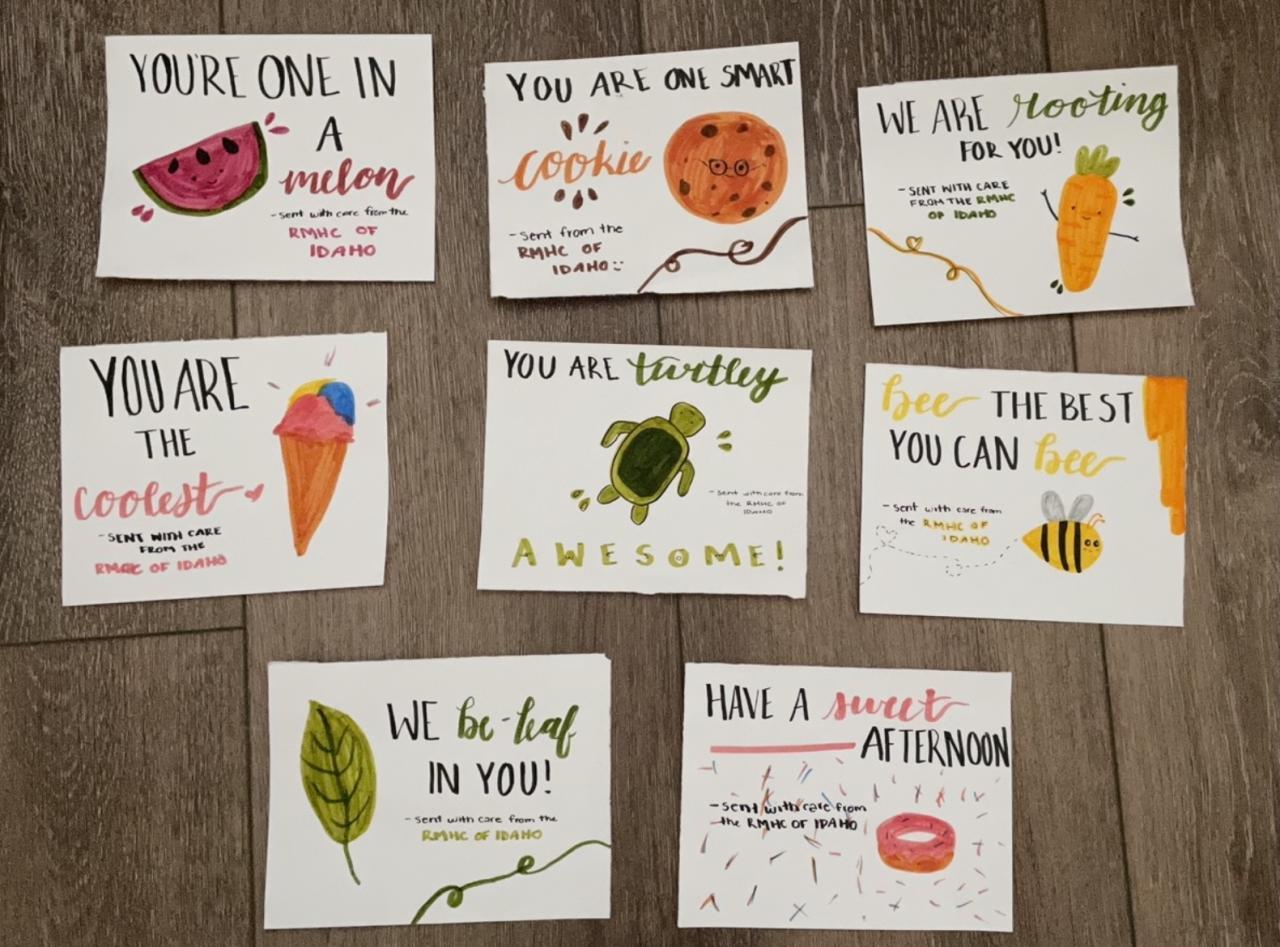 YOU'RE ONE IN
A
melon
- sent with care from the
RMHC OF
IDAHO
YOU ARE ONE SMART
cookie
- sent from the
RMHC OF
IDAHO :)
WE ARE rooting
FOR YOU!
- SENT WITH CARE
FROM THE RMHC
OF IDAHO
YOU ARE
THE
coolest
- SENT WITH CARE
FROM THE
RMHC OF IDAHO
YOU ARE turtley
- sent with care from
the RMHC OF
IDAHO
AWESOME!
bee THE BEST
YOU CAN bee
- sent with care from
the RMHC OF
IDAHO
WE be-leaf
IN YOU!
- sent with care from the
RMHC OF IDAHO
HAVE A sweet
AFTERNOON
- sent with care from
the RMHC OF IDAHO